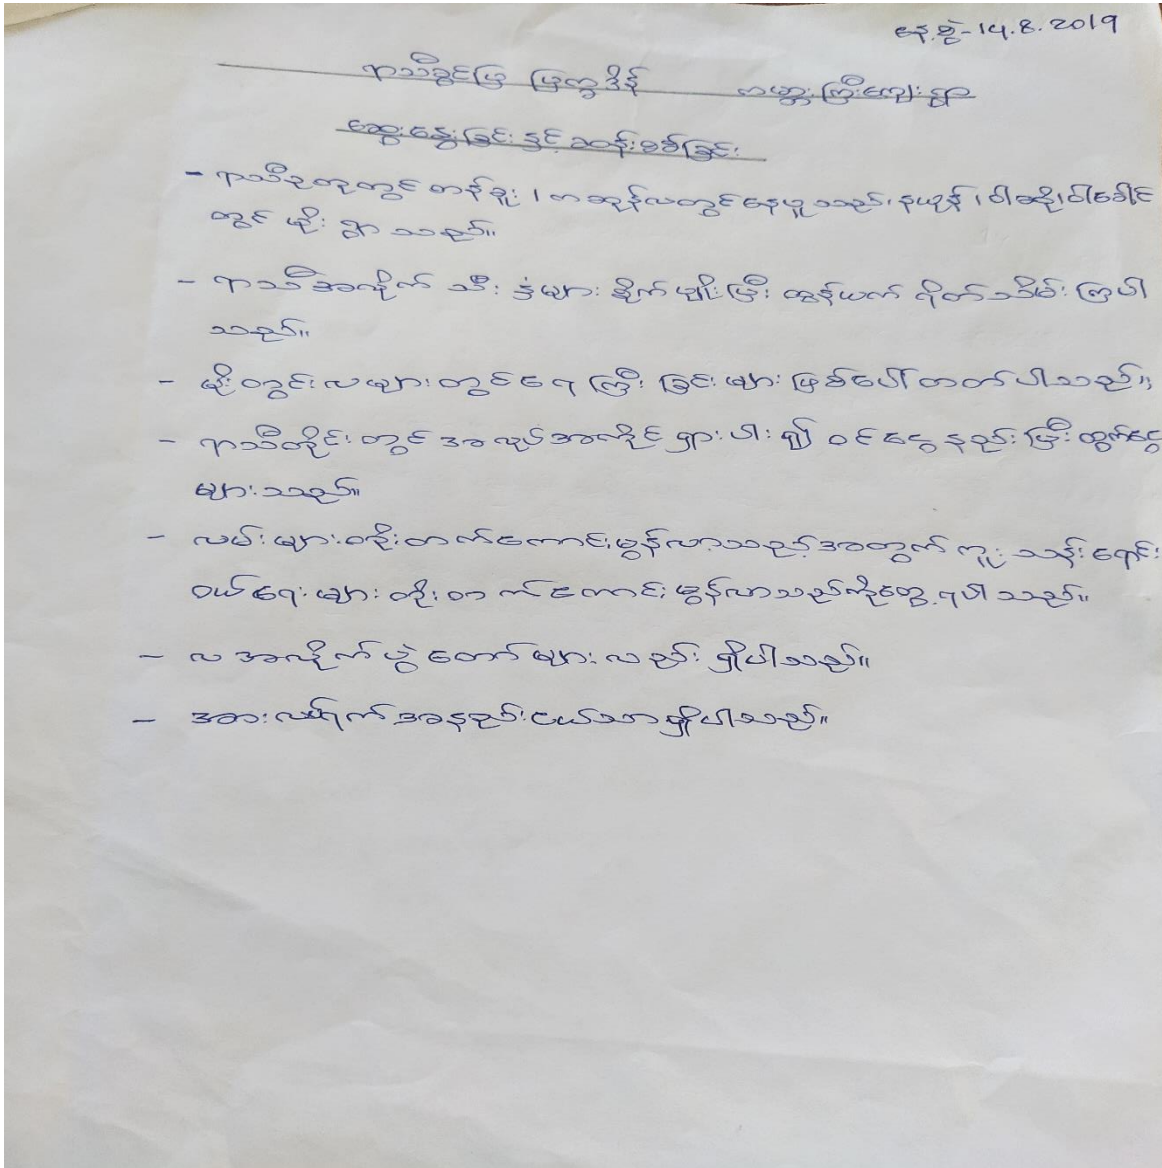 နေ့စွဲ-14.8.2019
ရာသီခွင်ပြ ပြက္ခဒိန် ကတ္တူကြီးကျေးရွာ
ဆွေးနွေးခြင်းနှင့်ဆန်းစစ်ခြင်း
- ရာသီဥတုတွင် တန်ခူး၊ ကဆုန်လတွင်နေပူသည်၊ နယုန်၊ ဝါဆို၊ ဝါခေါင်
တွင် မိုး ရွာ သည်။
- ရာသီအလိုက် သီး နှံများ စိုက်ပျိုးပြီး ထွန်ယက် ရိတ်သိမ်း ကြပါ
သည်။
- မိုးတွင်းလများတွင်ရေ ကြီး ခြင်းများ ဖြစ်ပေါ်တတ်ပါသည်။
- ရာသီတိုင်းတွင် အလုပ်အကိုင် ရှားပါး၍ ဝင်ငွေ နည်းပြီး ထွက်ငွေ
များသည်။
- လမ်းများတိုးတက်ကောင်းမွန်လာသည့်အတွက် ကူးသန်းရောင်း
ဝယ်ရေးများ တိုးတက်ကောင်းမွန်လာသည်ကိုတွေ့ရပါသည်။
- လ အလိုက်ပွဲတော်များလည်း ရှိပါသည်။
- အားလပ်ရက်အနည်းငယ်သာရှိပါသည်။